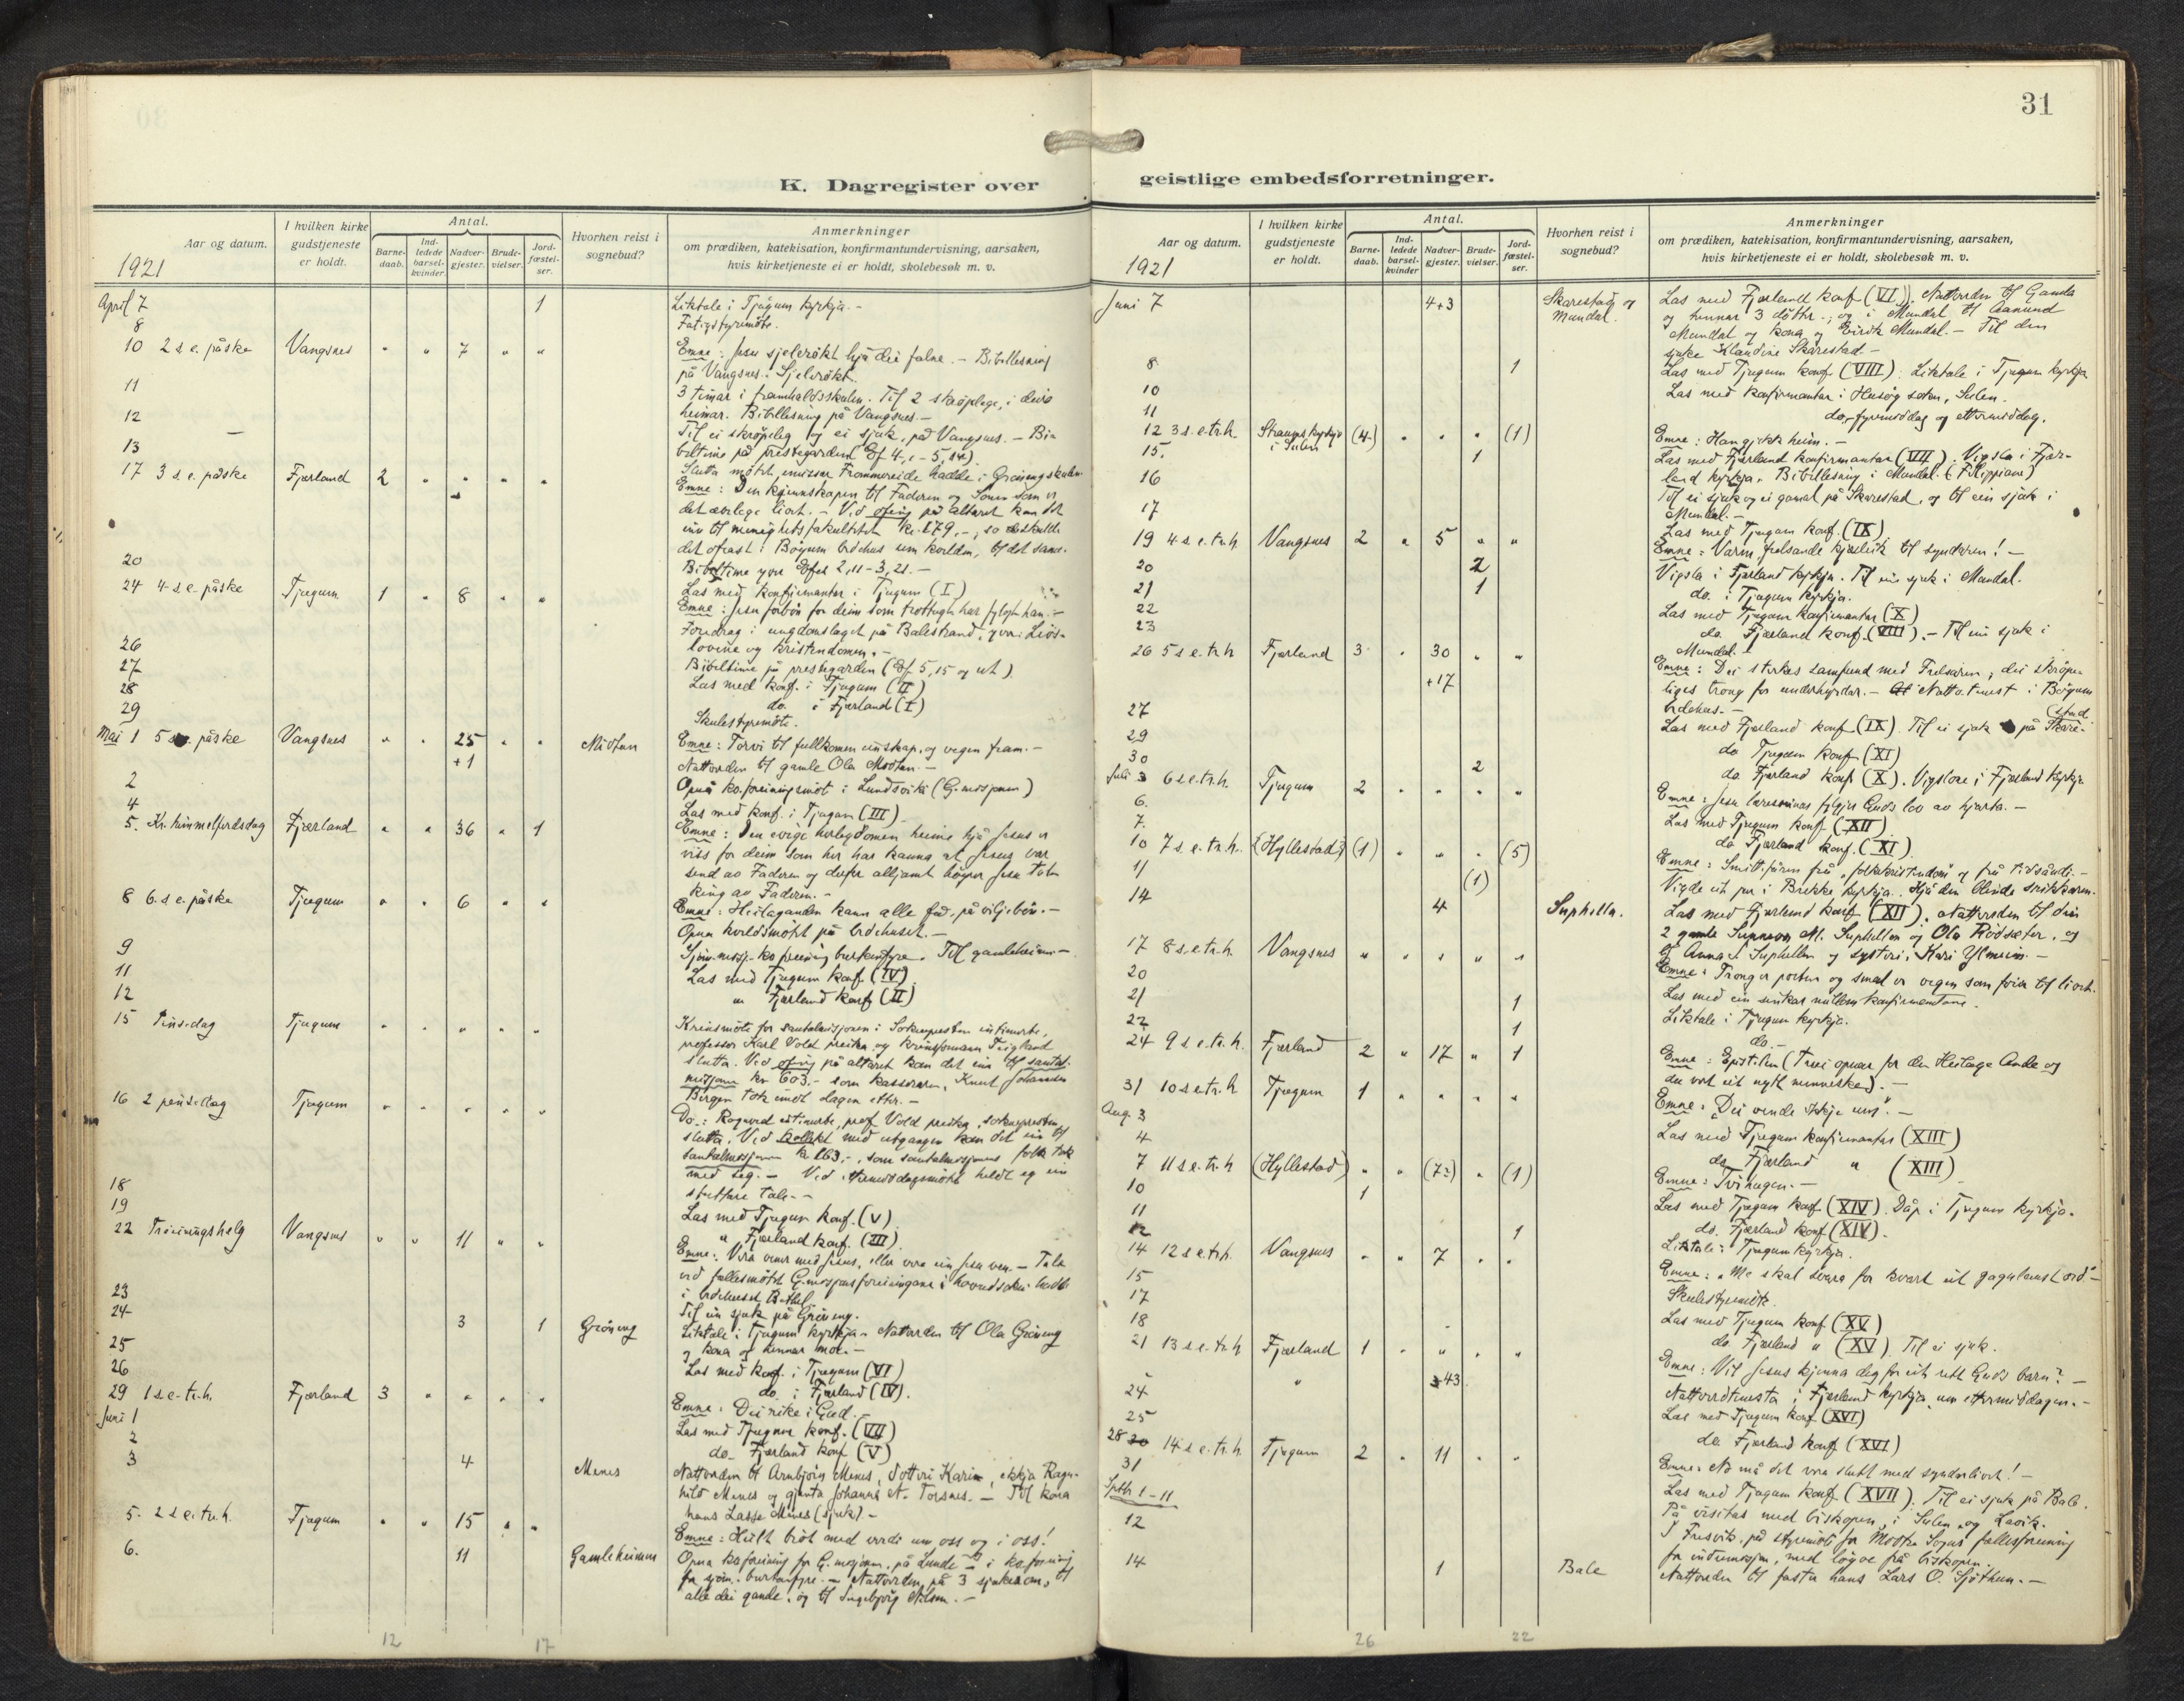 31
K. Dagregister over
geistlige embedsforretninger.
Aar og datum.
1921
I hvilken kirke gudstjeneste er holdt.
Antal.
Barne-daab.
Ind-ledede barsel-kvinder.
Nadver-gjester.
Brude-vielser.
Jord-fæstel-ser.
Hvorhen reist i sognebud?
Anmerkninger
om prædiken, katekisation, konfirmantundervisning, aarsaken,
hvis kirketjeneste ei er holdt, skolebesøk m. v.
April 7 1 Liktale i Tjugum kyrkja. -
8 Fatigstyremöte.
10 2 s. e. påske Vangsnes " " 7 " " Emne: Jesu sjelerökt hjå dei falne. - Bibellesning
på Vangsnes: Sjelerökt.
11 3 timar i framhaldsskulen. Til 2 skröplege, i deira
heimar. Bibellesning på Vangsnes. -
12 Til ei skröpeleg og ei sjuk, på Vangsnes. - Bi-
13 beltime på prestegarden (Ef 4,1 - 5,14)
17 3 s. e. påske Fjærland 2 " " " " Slutta mötet, emissær Frammereide hadde i Gröningskulen
Emne: Den kjennskapen til Faderen og Sonen som er
det ævelege livet. - Ved ofring på altaret kom det
inn til menighetsfakultetet kr. 179,-, so
det ofrast i Böyum bedehus um kvelden, til det same.
20 Bibeltime yver Efes 2,11 - 3,21. -
24 4 s. e. påske Tjugum 1 " 8 " " Las med konfirmantar i Tjugum (I)
Emne: Jesu forbön for deim som trottugt har fylgt han. -
Foredrag i ungdomslaget på Balestrand, yver: Livs-
26 lovene og kristendomen. -
27 Bibeltime på prestegarden (Ef 5,15 og ut)
28 Las med konf. i Tjugum (II)
29 do. i Fjærland (I)
Skulestyremöte.
Mai 1 5 s. e. påske Vangsnes " " 25 " " Midtun Emne: Torvi til fullkomen einskap, og vegen fram. -
+1 Nattverden til gamle Ola Midtun. -
2 Opna ko.foreiningsmöt i Lundsviki (G. mosjonen)
4 Las med konf. i Tjugum (III)
5. Kr. himmelferdsdag Fjærland " " 36 " 1 Emne: Den evige herlegdomen heime hjå Jesus er
viss for deim som her har kanna at Jesus var
send av Faderen og derfor alltjamt höyrer Jesu tolk-
king av Faderen. -
8 6. s. e. påske Tjugum " " 6 " " Emne: Heilaganden kann alle få, på viljebön. -
Opna kveldsmötet på bedehuset. -
9 Sjöm. misj. ko.foreining burkanfyre. Til gamleheimen -
11 Las med Tjugum konf. (IV)
12 " Fjærland konf (II)
15 Pinsedag Tjugum " " " " " Kreinsmöte for santalmisjonen: Sokneprestn intimerte,
professor Karl Vold preika, og kreinsformann Feigland
slutta. Ved ofring på altaret kom det inn til santal-
misjonen kr 603,- som kasseraren, Knut Johannesen
Bergen tok imot dagen etter. -
16 2 pinsedag Tjugum " " " " " Do.: Rognved intimerte, prof Vold preika, soknepresten
slutta. Ved kollekt med utgangen kom det inn til
santalmisjonen kr 163,-, som santalmisjonens folk tok
med seg. - Ved ettermiddagsmötet heldt eg ein
18 stuttare tale. -
19 Las med Tjugum konf. (V)
22 Treeiningshelg Vangsnes " " 11 " " " Fjærland konf. (III)
Emne: Vera vener med Jesus, eller vera ein Jesu ven. - Tala
ved fellesmötet G. misjonsforeiningane i hovudsokni hadde
23 i bedehuset Bethel
24 3 1 Gröneng Til ein sjuk på Gröneng.
Liktale i Tjugum kyrkja. Nattverden til Ola Gröneng
25 og kona og hennar mor. -
26 Las med konf. i Tjugum (VI)
29 1 s. e. tr.h. Fjærland 3 " " " " do. i Fjærland (IV).
Juni 1 Emne: Dei rike i Gud. -
2 Las med Tjugum konf. (VII)
3 4 Menes do. Fjærland konf (V)
Nattverden til Arnbjörg Menes, dotteri Kari, ekkja Ragn-
hild Menes og gjenta Johanna N. Torsnes. - Til kona
hans Lasse Menes (sjuk). -
5. 2 s. e. tr.h. Tjugum " " 15 " " Emne: Heilt brot med verdi um oss og i oss!
6. 11 Gamleheimen Opna ko.foreining for G. misjonen, på Lunde i ko.foreining
for sjöm. burkanfyre. - Nattverden på 3 sjukerom, til
alle dei gamle, og til Ingebjörg Nilsen. -
12 17
Aar og datum.
1921
I hvilken kirke gudstjeneste er holdt.
Antal.
Barne-daab.
Ind-ledede barsel-kvinder
Nadver-gjester.
Brude-vielser.
Jord-fæstel-ser.
Hvorhen reist i sognebud?
Anmerkninger
om prædiken, katekisation, konfirmantundervisning, aarsaken,
hvis kirketjeneste ei er holdt, skolebesøk m. v.
Juni 7 4+3 Skarestad og Mundal. Las med Fjærland konf (VI). Nattverden til Gamla
og hennar 3 döttr.; og i Mundal til Aamund
Mundal og kona og Eirik Mundal. - Til den
sjuke Klaudine Skarestad. -
8 1 Las med Tjugum konf (VIII). Liktale i Tjugum kyrkja
10 Las med konfirmantar i Husöy sokn, Sulen.
11 do. fyremiddag og ettermiddag.
12 3 s. e. tr.h. Straums kyrkja i Sulen (4) " " " (1) Emne: Han gjekk heim. -
15. 1 Las med Fjærland konfirmantar (VII). Vigsla i Fjær-
16 land kyrkja. Bibellesning i Mundal. (Filipparar)
Til ei sjuk og ei gamal på Skarestad, og til ein sjuk i
17 Mundal. -
Las med Tjugum konf. (IX)
19 4 s. e. tr.h. Vangsnes 2 " 5 " " Emne: Varm, frelsande kjærleik til syndaren! -
20 2 Vigsla i Fjærland kyrkja. Til ein sjuk i Mundal.
21 1 do. i Tjugum kyrkja.
22 Las med Tjugum konfirmantar (X)
23 do. Fjærland konf. (VIII). - Til ein sjuk i
26 5 s. e. tr.h Fjærland 3 " 30 " " Mundal. -
+17 Emne: Dei sterkes samfund med Frelsaren; dei skröpe-
liges trong for underhyrdar. - Nattv.tenest i Böyum
27 bedehus. -
Las med Fjærland konf (IX). Til ei sjuk på Skare- (stad
29 do Tjugum konf (XI)
30 2 do Fjærland konf (X). Vigslor i Fjærland kyrkje
Juli 3 6 s. e. tr.h. Tjugum 2 " " " " Emne: Jesu læresveinar fylgjer Guds lov av hjarta. -
6. Las med Tjugum konf (XII)
7. do Fjærland konf. (XI)
10 7 s. e. tr.h. (Hyllestad) (1) " " " (5) Emne:
11 (1) Vigde eit par i Brekke kyrkja. Hjå den blinde
14 4 Suphella. Las med Fjærland konf (XII). Nattverden til dei
2 gamle Synneva M. Suphellen og Ola Rödseter, og
til Anna S Suphellen og systeri, Kari Ylmeim. -
17 8 s. e. tr.h. Vangsnes " " " " " Emne: Trong er porten og smal er vegen som förer til livet.
20 Las med ein
21 1 Liktale i Tjugum kyrkja.
22 1 do. -
24 9 s. e. tr.h. Fjærland 2 " 17 " 1 Emne: Epistelen (Tvei opnar for den Heilage Ande og
du vert eit nytt menneske). -
31 10 s. e. tr.h Tjugum 1 " " " " Emne: "Dei vende ikkje um". -
Aug. 3 Las med Tjugum konfirmantar (XIII)
4 do Fjærland " (XIII)
7 11 s. e. tr.h (Hyllestad) " " (72) " (1) Emne: Tvihugen. -
10 1 Las med Tjugum konf. (XIV). Dåp i Tjugum kyrkja.
11 do. Fjærland konf (XIV).
12 1 Liktale i Tjugum kyrkja.
14 12 s. e. tr.h. Vangsnes " " 7 " " Emne: "Me skal svara for kvart eit gagnlaust ord" -
15 Skulestyremöte.
17 Las med Tjugum konf (XV)
18 do. Fjærland " (XV). Til ei sjuk.
21 13 s. e. tr.h Fjærland 1 " " " " Emne: Vil Jesus kjenna deg for eit rett Guds barn? -
" 43 Nattverdtenesta i Fjærland kyrkja um ettermiddagen. -
24 Las med Tjugum konf. (XVI)
25 do. Fjærland konf (XVI)
28 14 s. e. tr.h Tjugum 2 " 11 " " Emne: No må det vera slutt med syndarlivet! -
31 Las med Tjugum konf (XVII). Til ei sjuk på Bale.
Septb. 1-11 På visitas med biskopen, i Sulen og Lavik.
12 I Fresvik, på styremöte for Midtre Sogns fellesforeining
for indremisjon, med löyve frå biskopen.
14 1 Bale Nattverden til faster hans Lars O. Sjöthun. -
26 22